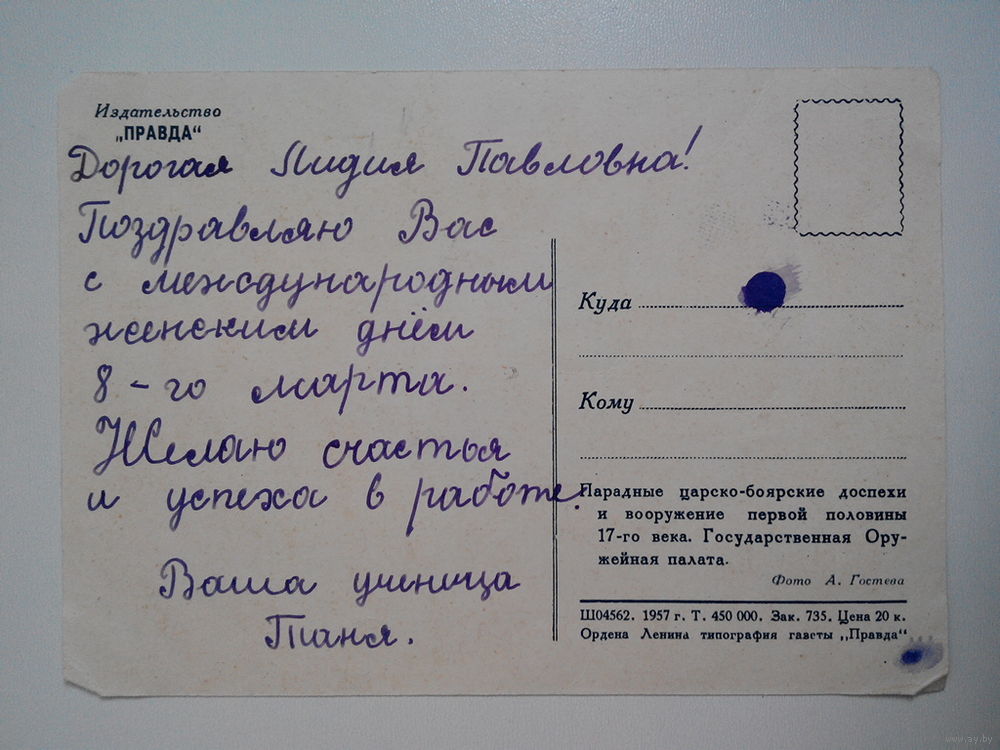 Издательство
„ПРАВДА“
Дорогая Лидия Павловна!
Поздравляю Вас
с международным
женским днём
8-го марта.
Желаю счастья
и успеха в работе.
Ваша ученица
Таня.
Куда
Кому
Парадные царско-боярские доспехи
и вооружение первой половины
17-го века. Государственная Ору-
жейная палата.
Фото А. Гостева
Ш04562. 1957 г. Т. 450 000. Зак. 735. Цена 20 к.
Ордена Ленина типография газеты „Правда“
www.ay.by